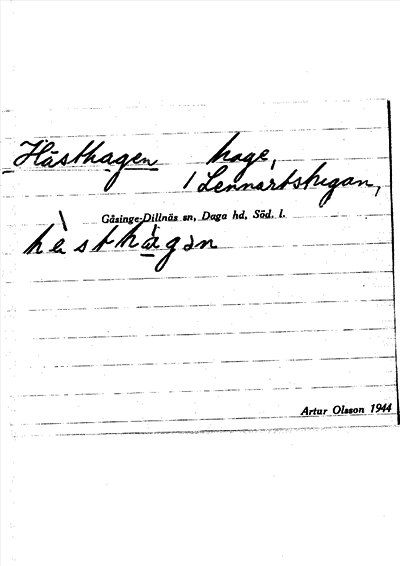 Hästhagen hage,
/ Lennartstugan,
Gåsinge-Dillnäs sn, Daga hd, Söd. l.
hàsthágan
Artur Olsson 1944